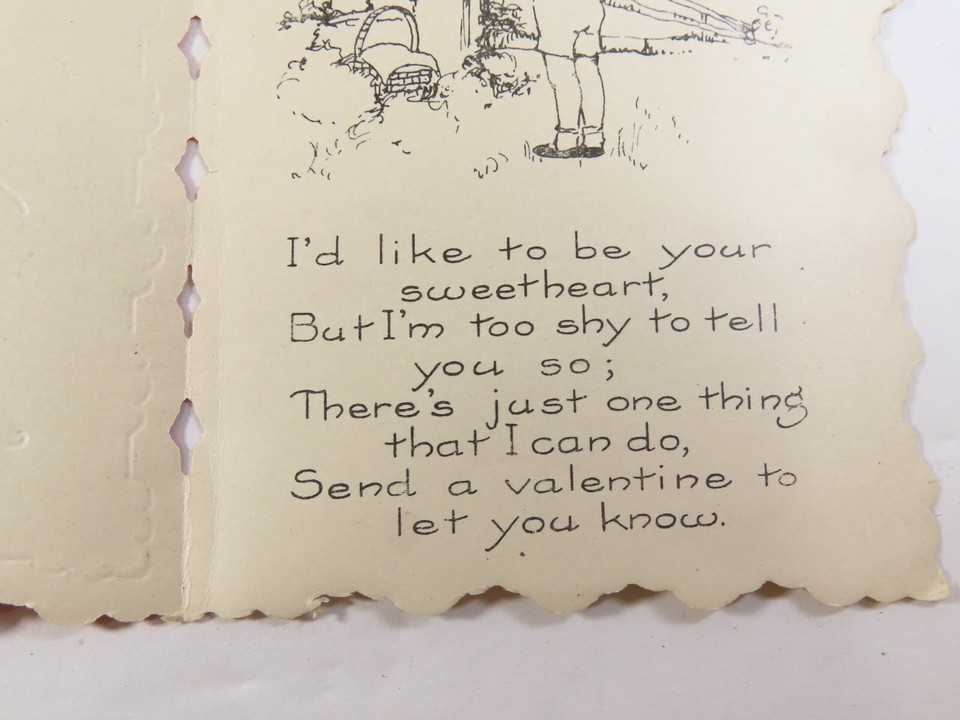 I'd like to be your
sweetheart,
But I'm too shy to tell
you so;
There's just one thing
that I can do,
Send a valentine to
let you know.